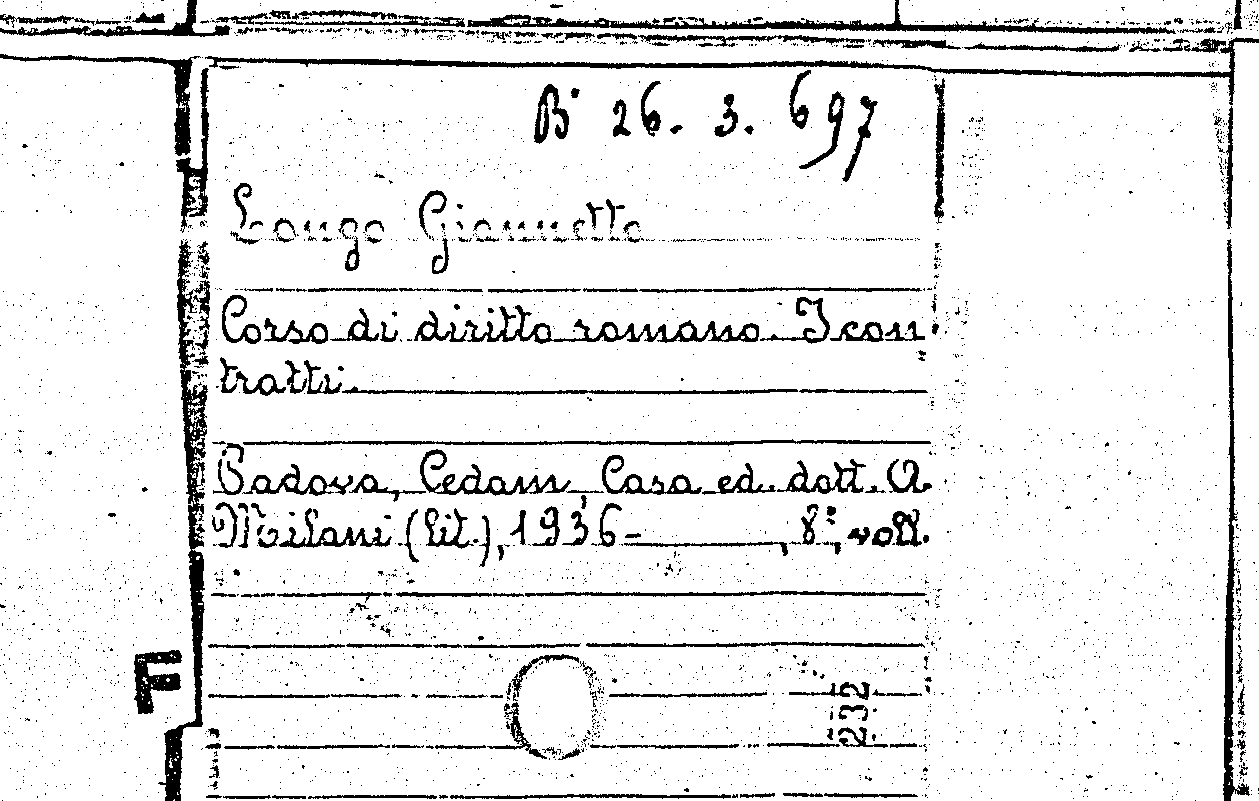 B° 26. 3. 697
Longo Giannetto
Corso di diritto romano. I con
tratti.
Padova, Cedam, Casa ed. dott. A.
Milani (lit.), 1936- , 8°, voll.
F
232